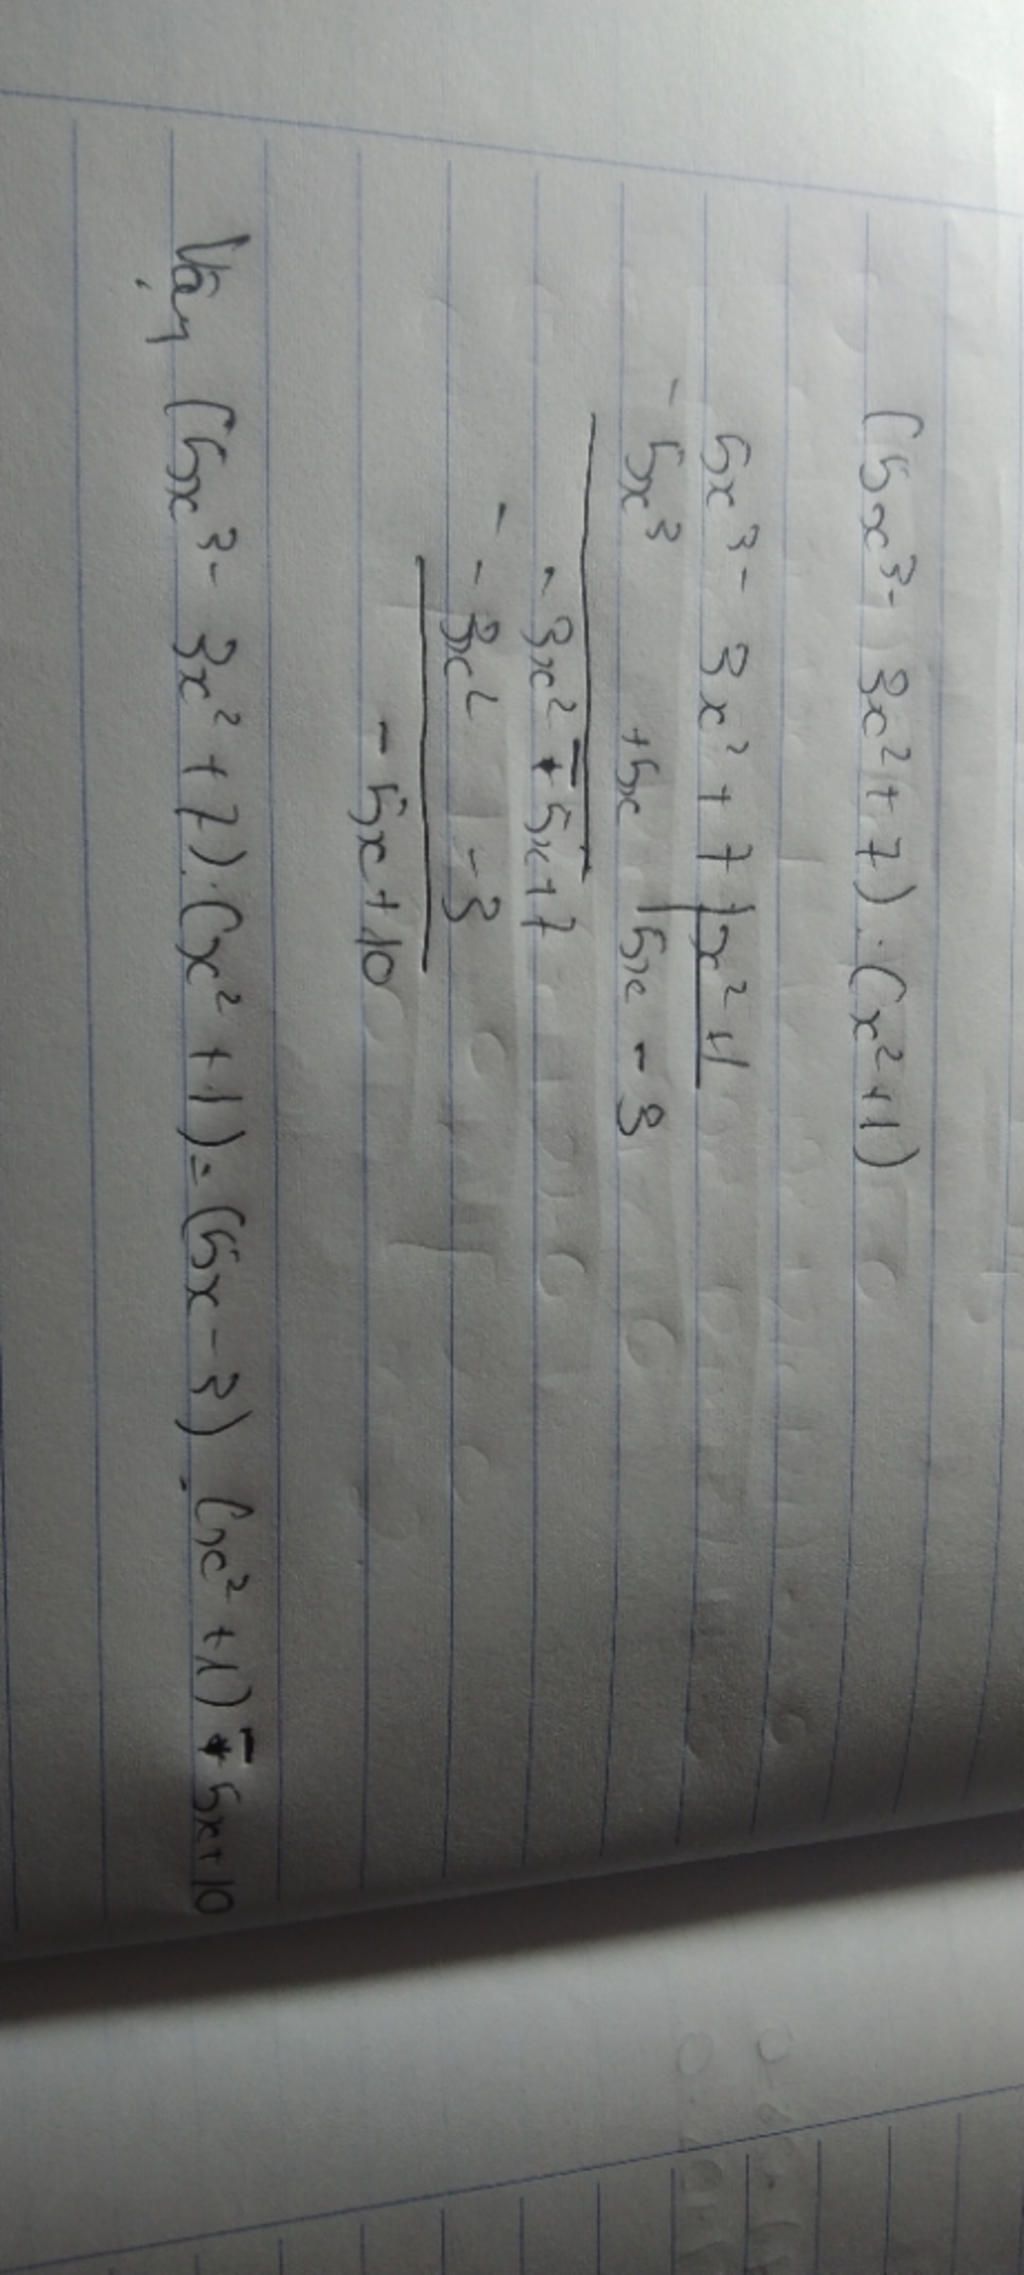 (5x³ - 3x² + 7) : (x² + 1)
5x³ - 3x² + 7 | x² + 1
- 5x³ + 5x | 5x - 3
- 3x² - 5x + 7
- - 3x² - 3
- 5x + 10
Vậy (5x³ - 3x² + 7) : (x² + 1) = (5x - 3) . (x² + 1) - 5x + 10